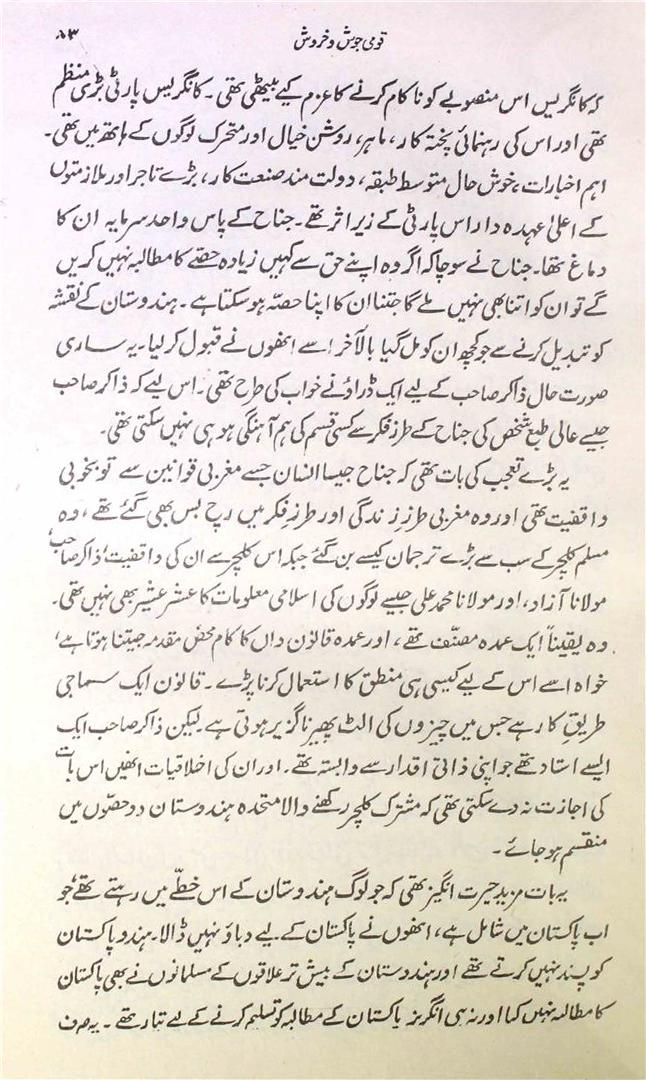 قومی جوش و خروش
۸۳
کہ کانگریس اس منصوبے کو ناکام کرنے کا عزم کیے بیٹھی تھی۔ کانگریس پارٹی بڑی منظم
تھی اور اس کی رہنمائی پختہ کار، ماہر، روشن خیال اور متحرک لوگوں کے ہاتھ میں تھی۔
اہم اخبارات، خوش حال متوسط طبقہ، دولت مند صنعت کار، بڑے تاجر اور ملازمتوں
کے اعلیٰ عہدہ دار اس پارٹی کے زیر اثر تھے۔ جناح کے پاس واحد سرمایہ ان کا
دماغ تھا۔ جناح نے سوچا کہ اگر وہ اپنے حق سے کہیں زیادہ حصّے کا مطالبہ نہیں کریں
گے تو ان کو اتنا بھی نہیں ملے گا جتنا ان کا اپنا حصّہ ہو سکتا ہے۔ ہندوستان کے نقشہ
کو تبدیل کرنے سے جو کچھ ان کو مل گیا بالآخر اسے انھوں نے قبول کر لیا۔ یہ ساری
صورت حال ذاکر صاحب کے لیے ایک ڈراؤنے خواب کی طرح تھی۔ اس لیے کہ ذاکر صاحب
جیسے عالی طبع شخص کی جناح کے طرز فکر سے کسی قسم کی ہم آہنگی ہو ہی نہیں سکتی تھی۔
یہ بڑے تعجب کی بات تھی کہ جناح جیسا انسان جسے مغربی قوانین سے تو بخوبی
واقفیت تھی اور وہ مغربی طرزِ زندگی اور طرزِ فکر میں رچ بس بھی گئے تھے، وہ
مسلم کلچر کے سب سے بڑے ترجمان کیسے بن گئے جبکہ اس کلچر سے ان کی واقفیت، ذاکر صاحب،
مولانا آزاد، اور مولانا محمد علی جیسے لوگوں کی اسلامی معلومات کا عشر عشیر بھی نہیں تھی۔
وہ یقیناً ایک عمدہ مصنّف تھے، اور عمدہ قانون داں کا کام محض مقدمہ جیتنا ہوتا ہے،
خواہ اسے اس کے لیے کیسی ہی منطق کا استعمال کرنا پڑے۔ قانون ایک سماجی
طریقِ کار ہے جس میں چیزوں کی الٹ پھیر ناگزیر ہوتی ہے۔ لیکن ذاکر صاحب ایک
ایسے استاد تھے جو اپنی ذاتی اقدار سے وابستہ تھے۔ اور ان کی اخلاقیات انھیں اس بات
کی اجازت نہ دے سکتی تھی کہ مشترک کلچر رکھنے والا متحدہ ہندوستان دو حصّوں میں
منقسم ہو جائے۔
یہ بات مزید حیرت انگیز تھی کہ جو لوگ ہندوستان کے اس خطّے میں رہتے تھے، جو
اب پاکستان میں شامل ہے، انھوں نے پاکستان کے لیے دباؤ نہیں ڈالا۔ ہندو پاکستان
کو پسند نہیں کرتے تھے اور ہندوستان کے بیش تر علاقوں کے مسلمانوں نے بھی پاکستان
کا مطالبہ نہیں کیا اور نہ ہی انگریز پاکستان کے مطالبہ کو تسلیم کرنے کے لیے تیار تھے۔ یہ صرف